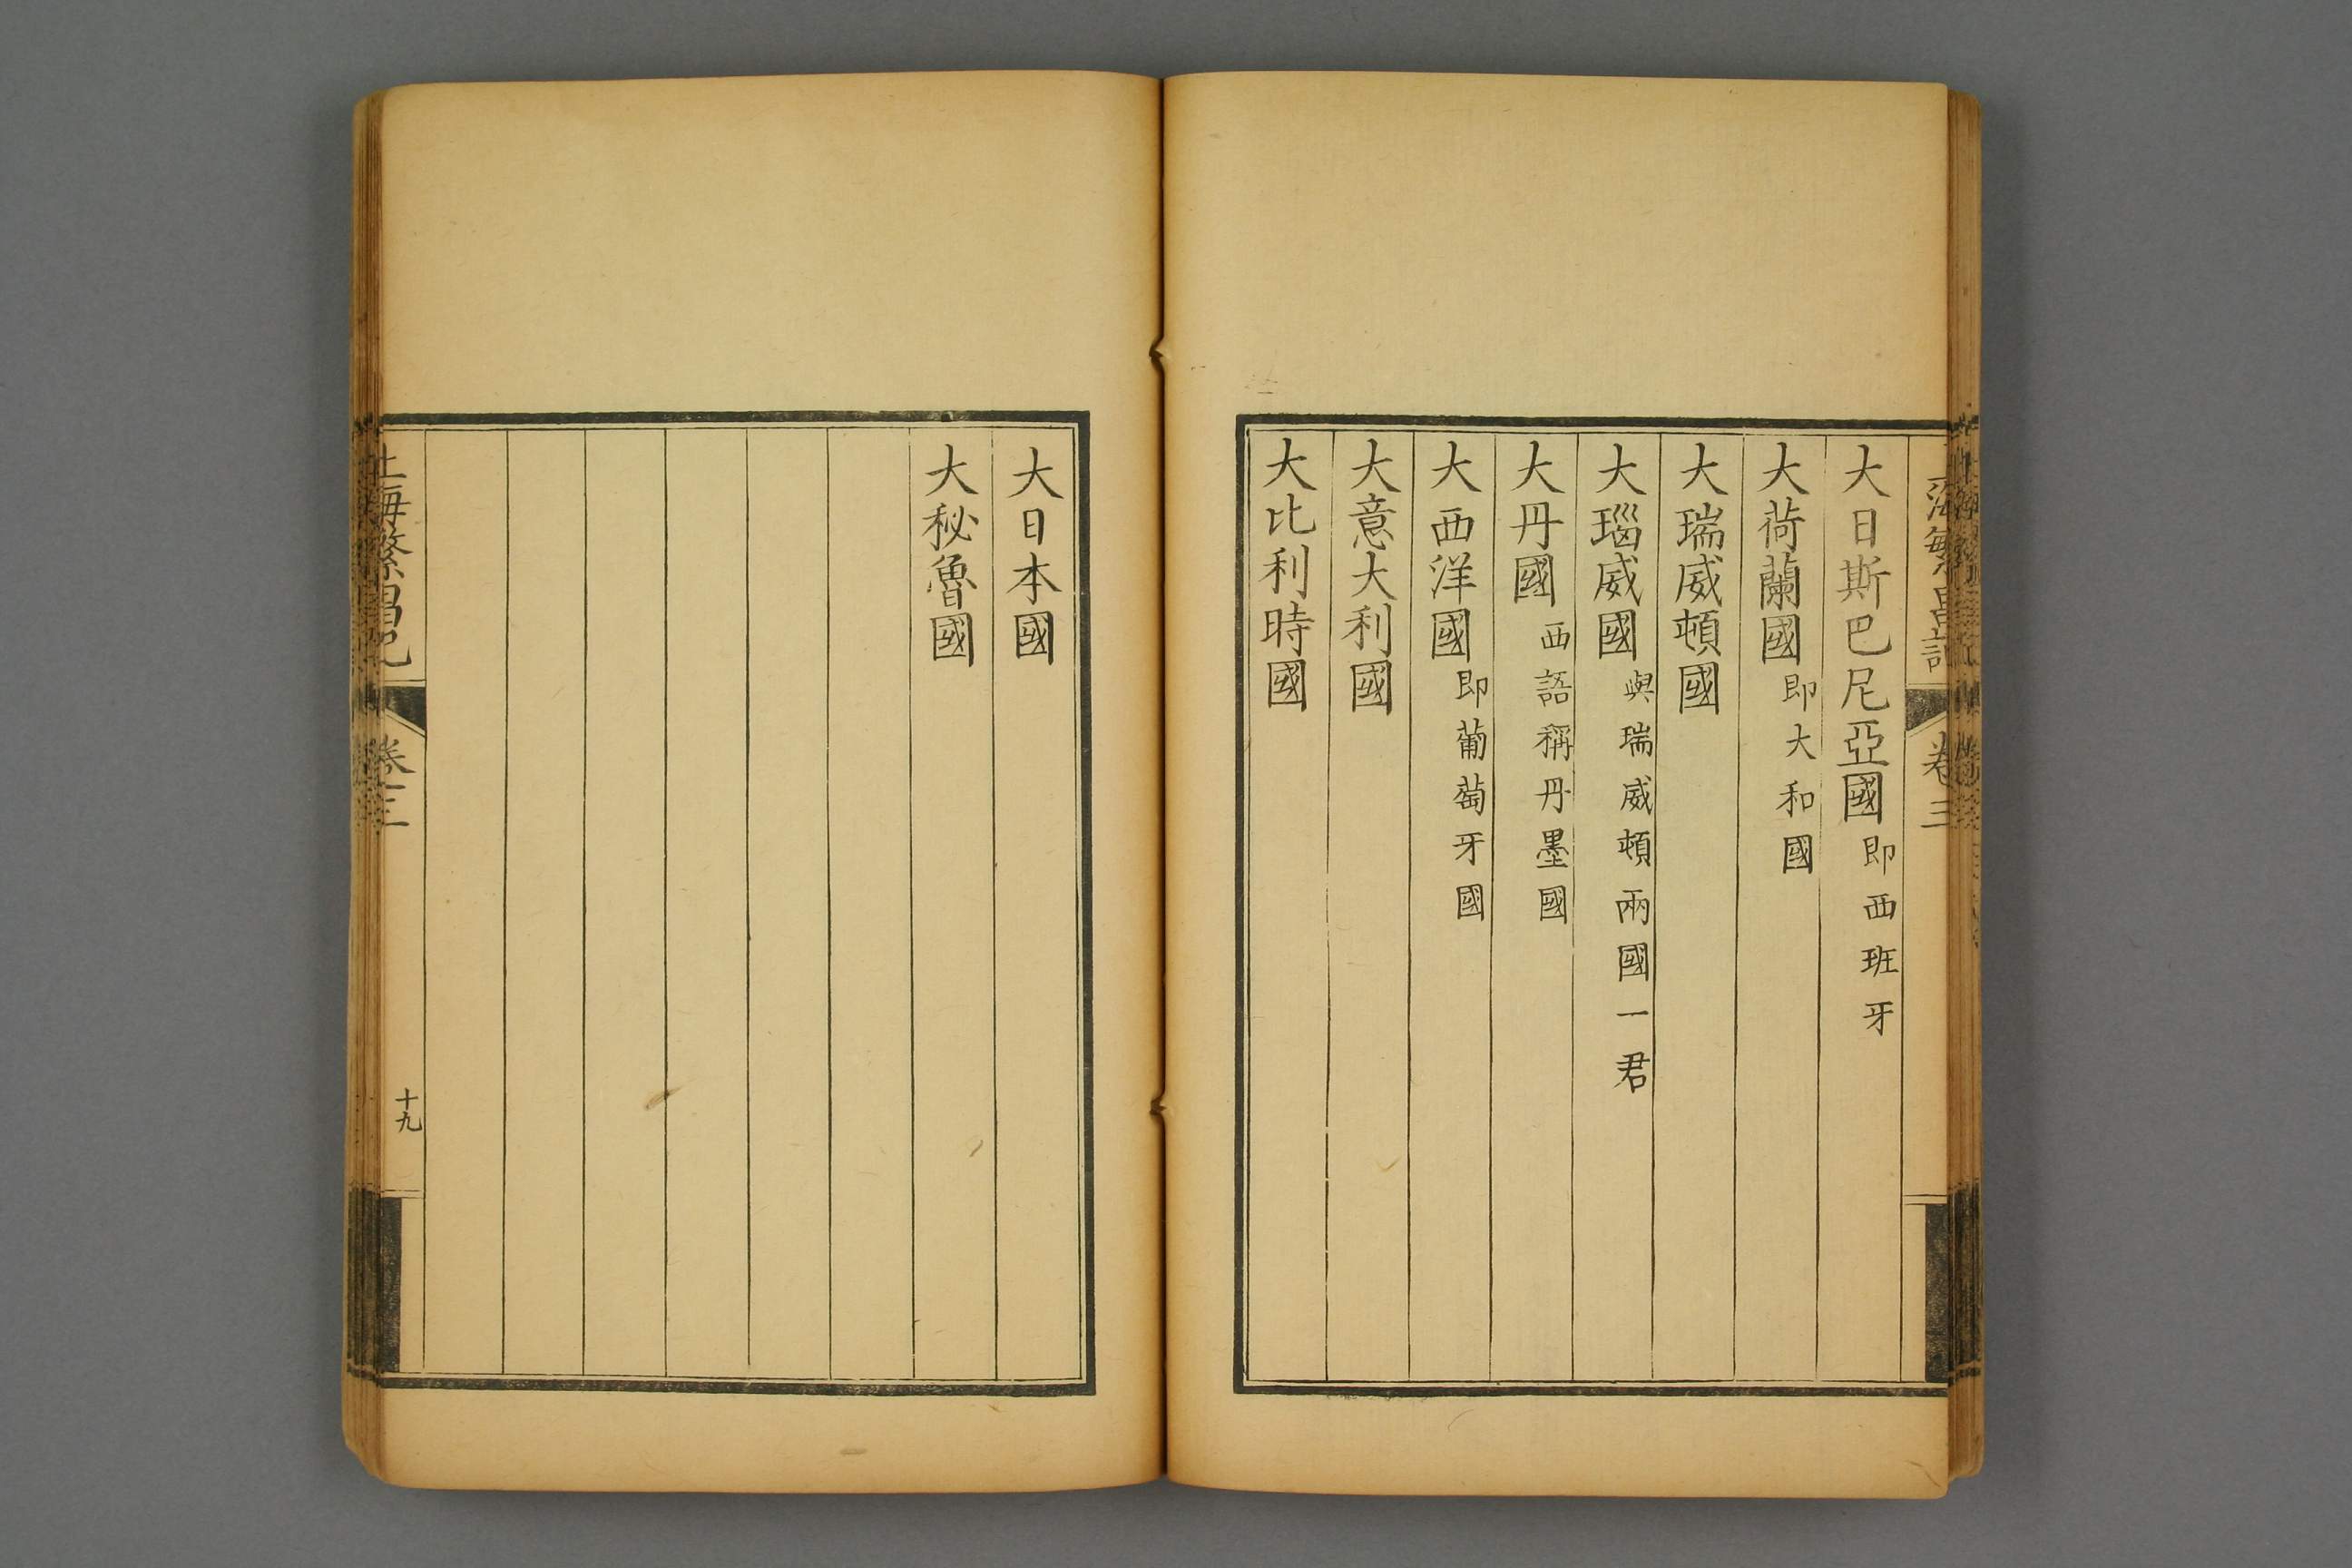 上海繁昌記 卷三
大日斯巴尼亞國 即西班牙
大荷蘭國 即大和國
大瑞威頓國
大瑙威國 與瑞威頓兩國一君
大丹國 西語稱丹墨國
大西洋國 即葡萄牙國
大意大利國
大比利時國
大日本國
大秘魯國
上海繁昌記 卷三 十九